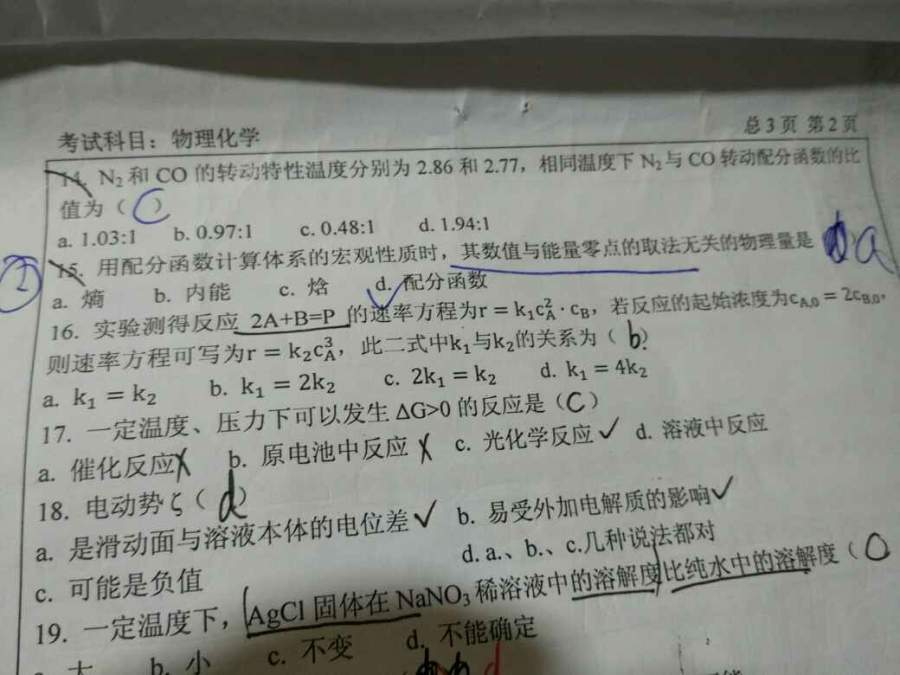 考试科目：物理化学
总3页 第2页
14. N₂和CO的转动特性温度分别为2.86和2.77，相同温度下N₂与CO转动配分函数的比
值为（C）
a. 1.03:1 b. 0.97:1 c. 0.48:1 d. 1.94:1
② 15. 用配分函数计算体系的宏观性质时，其数值与能量零点的取法无关的物理量是 a
a. 熵 b. 内能 c. 焓 d. 配分函数
16. 实验测得反应 2A+B=P 的速率方程为r = k₁c_A²·c_B，若反应的起始浓度为c_A,0 = 2c_B,0，
则速率方程可写为r = k₂c_A³，此二式中k₁与k₂的关系为（b）
a. k₁ = k₂ b. k₁ = 2k₂ c. 2k₁ = k₂ d. k₁ = 4k₂
17. 一定温度、压力下可以发生 ΔG>0 的反应是（C）
a. 催化反应 b. 原电池中反应 c. 光化学反应✓ d. 溶液中反应
18. 电动势 ζ（d）
a. 是滑动面与溶液本体的电位差✓ b. 易受外加电解质的影响✓
c. 可能是负值 d. a.、b.、c.几种说法都对
19. 一定温度下，AgCl 固体在 NaNO₃ 稀溶液中的溶解度比纯水中的溶解度（
大 b. 小 c. 不变 d. 不能确定